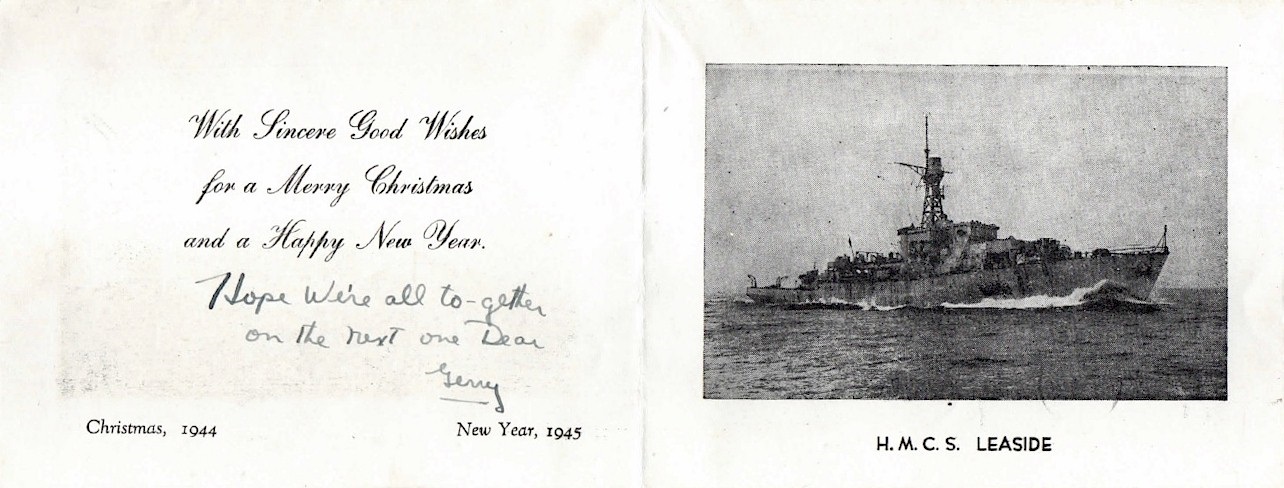 With Sincere Good Wishes
for a Merry Christmas
and a Happy New Year.
Hope We're all to-gether
on the next one Dear
Gerry
Christmas, 1944
New Year, 1945
H. M. C. S. LEASIDE